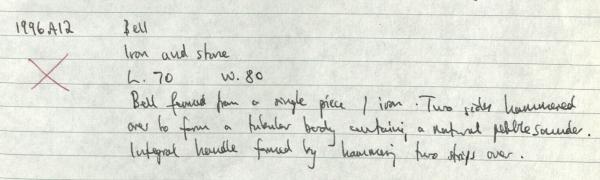 1996A12 Bell
Iron and stone
L. 70 W. 80
Bell formed from a single piece / iron. Two sides hammered
over to form a tubular body containing a natural pebble sounder.
Integral handle formed by hammering two strips over.